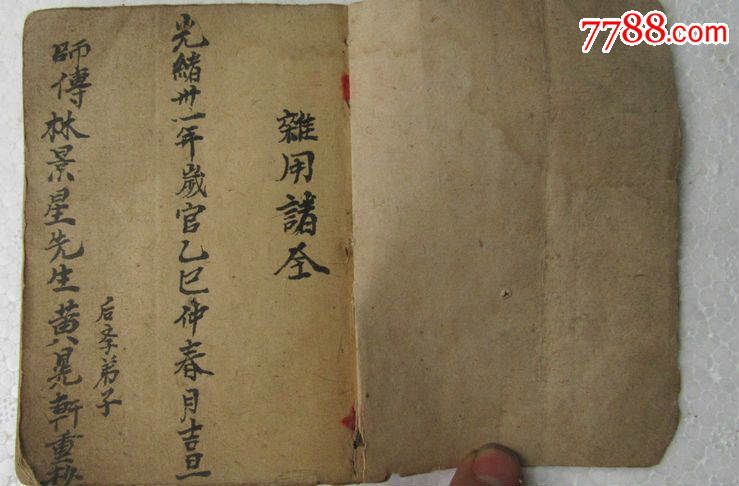 7788.com
雜用諸全
光緒卅一年歲官乙巳仲春月吉旦
后孝弟子
師傅林景星先生黄晃軒重抄